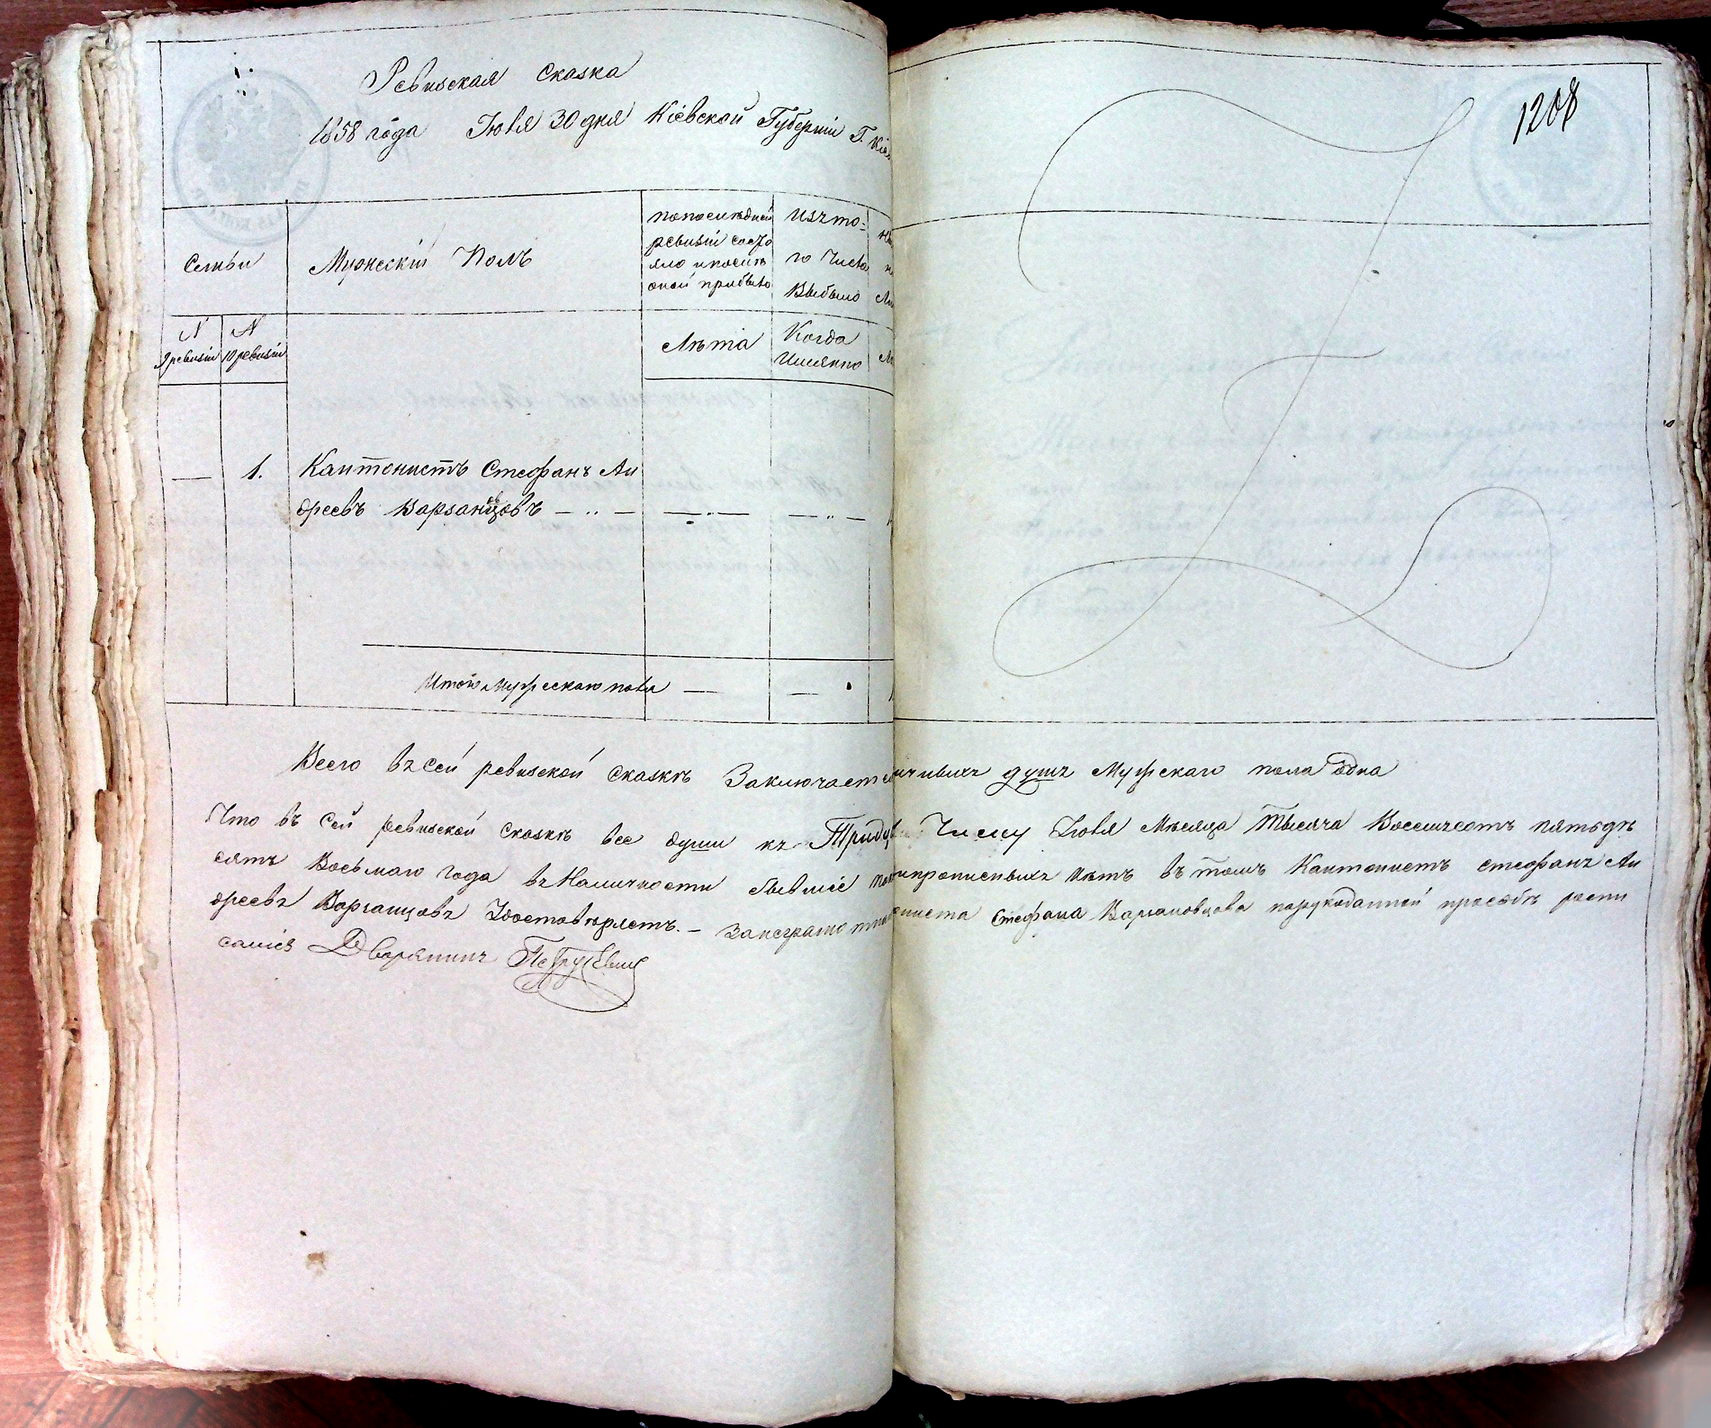 1208
Ревизская сказка
1858 года Іюля 30 дня Кіевской Губерніи Г. Кіе
Семьи
Мужескій Полъ
попослѣдней
ревизіи состо
яло и послѣ
оной прибыло
Изъ то-
го Числа
Выбыло
N
9 ревизіи
N
10 ревизіи
Лѣта
Когда
Имянно
— 1. Кантонистъ Стефанъ Ан
дреевъ Варзанцовъ
Итого Мужескаго пола —
Всего въ сей ревизской сказкѣ Заключает душъ Мужскаго пола одна
Что въ сей ревизской сказкѣ все души къ Числу Іюля Мѣсяца Тысяча Восемсотъ пятьдѣ
сятъ Восьмаго года въ Наличности бывшіе нѣтъ въ томъ Кантонистъ Стефанъ Ан
дреевъ Варзанцовъ Удостовѣряетъ. — За неграмотно Стефана рукоданной просьбѣ роспи
сался Дворянинъ